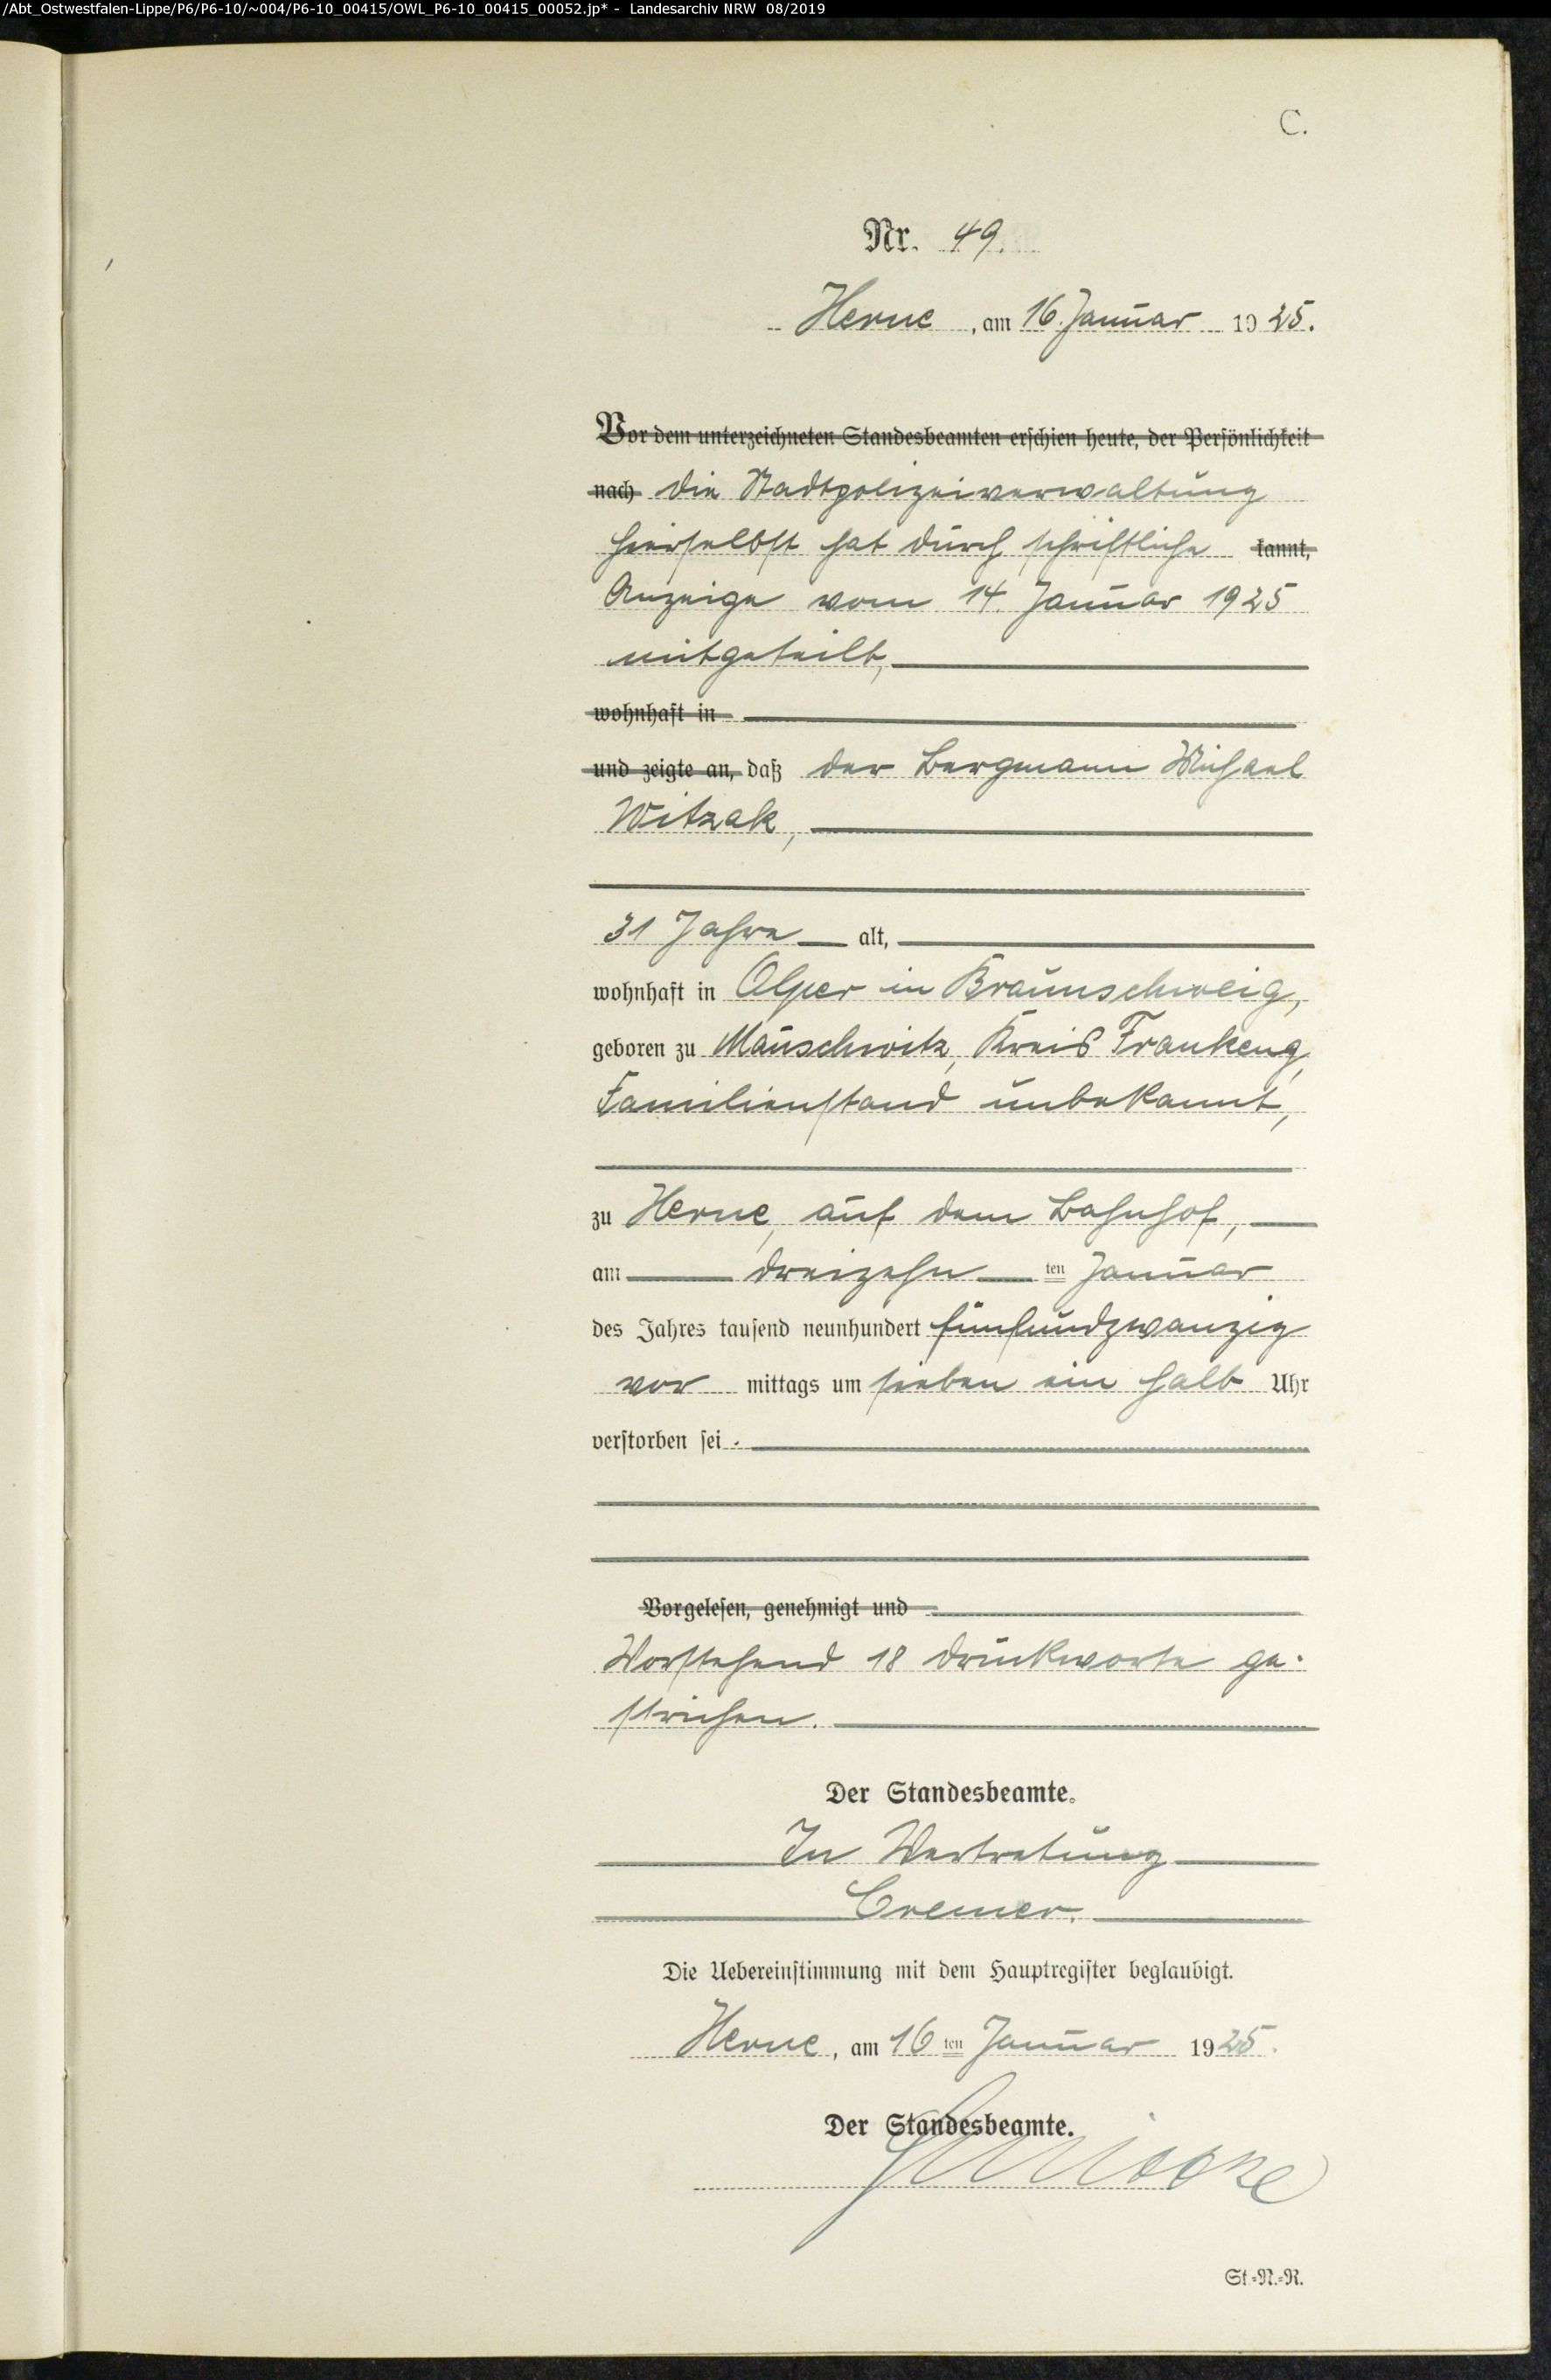 /Abt_Ostwestfalen-Lippe/P6/P6-10/~004/P6-10_00415/OWL_P6-10_00415_00052.jp* - Landesarchiv NRW 08/2019
C.
Nr. 49.
Herne, am 16. Januar 1925.
Vor dem unterzeichneten Standesbeamten erschien heute, der Persönlichkeit
nach die Stadtpolizeiverwaltung
hierselbst hat durch schriftliche kannt,
Anzeige vom 14. Januar 1925
mitgeteilt,
wohnhaft in
und zeigte an, daß der Bergmann Michael
Witzak,
31 Jahre alt,
wohnhaft in Olper in Braunschweig,
geboren zu Mauschwitz, Kreis Frankeng,
Familienstand unbekannt,
zu Herne, auf dem Bahnhof,
am dreizehnten Januar
des Jahres tausend neunhundert fünfundzwanzig
vormittags um sieben ein halb Uhr
verstorben sei.
Vorgelesen, genehmigt und
Vorstehend 18 Druckworte ge-
strichen.
Der Standesbeamte.
In Vertretung
Cremer.
Die Uebereinstimmung mit dem Hauptregister beglaubigt.
Herne, am 16ten Januar 1925.
Der Standesbeamte.
St.-N.-R.